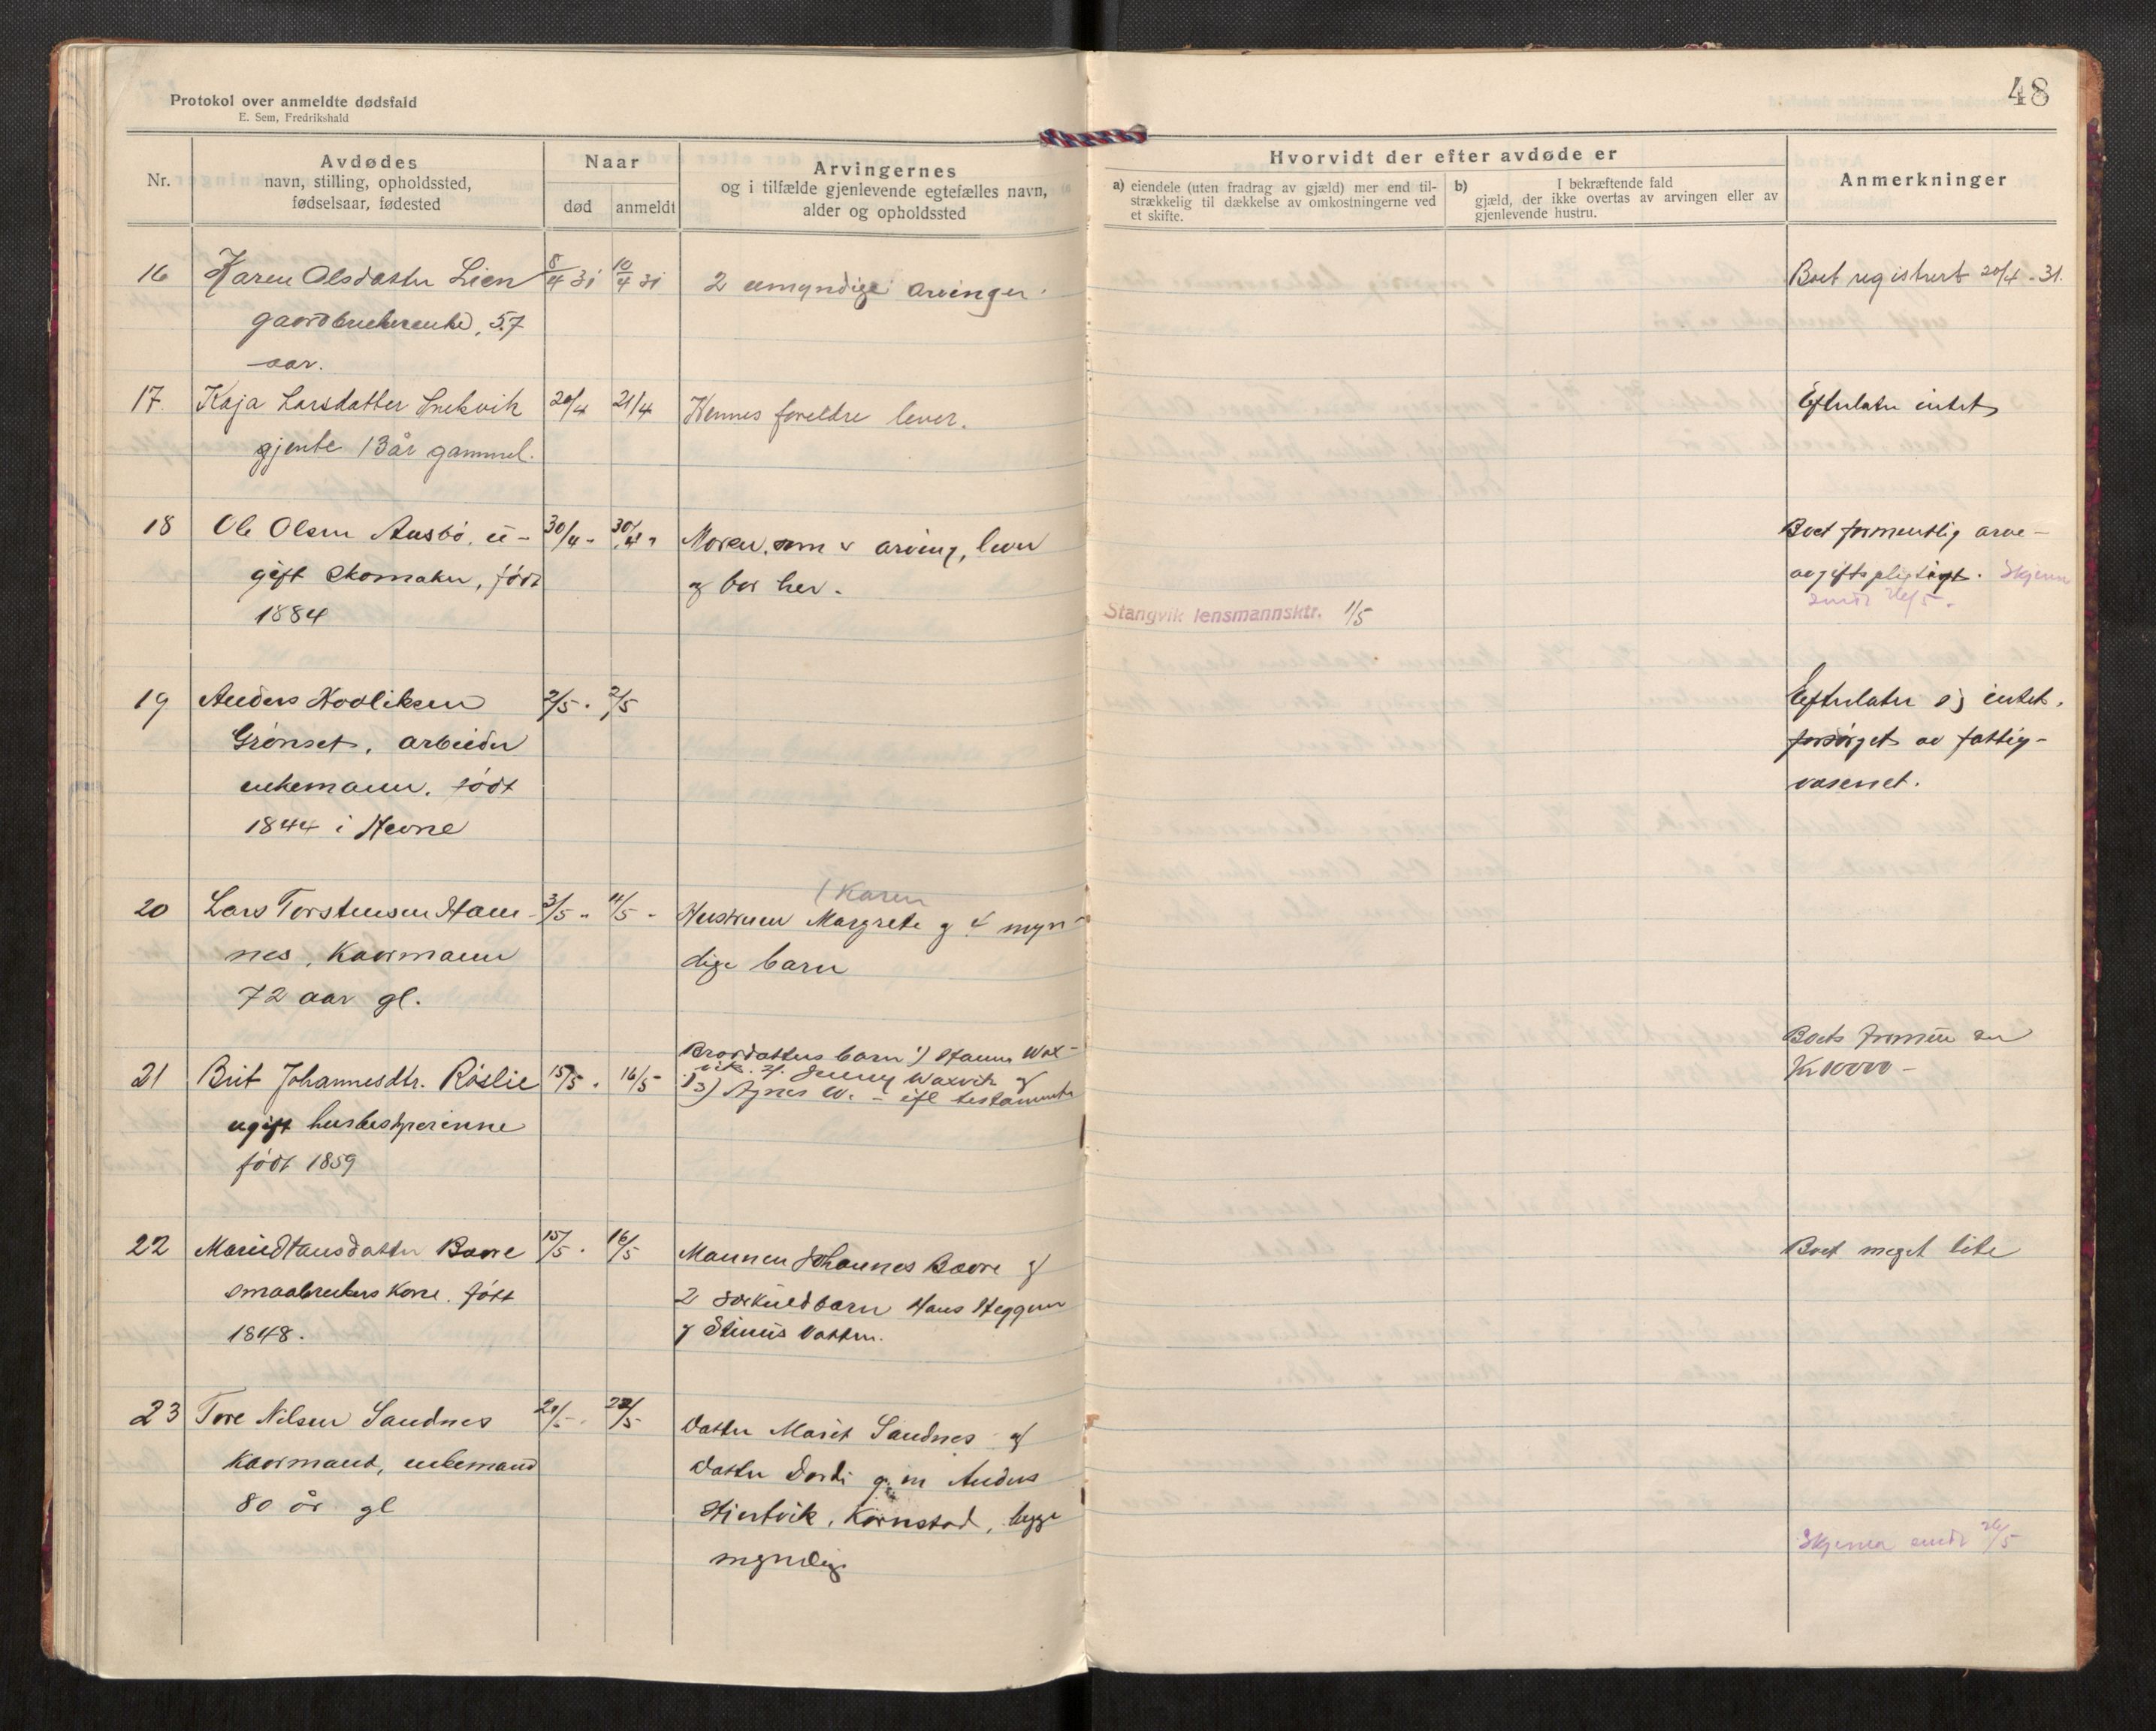 48
Protokol over anmeldte dødsfald
E. Sem, Fredrikshald
Nr.
Avdødes
navn, stilling, opholdssted,
fødselsaar, fødested
Naar
død
anmeldt
Arvingernes
og i tilfælde gjenlevende egtefælles navn,
alder og opholdssted
Hvorvidt der efter avdøde er
a) eiendele (uten fradrag av gjæld) mer end til-
strækkelig til dækkelse av omkostningerne ved
et skifte.
b) I bekræftende fald
gjæld, der ikke overtas av arvingen eller av
gjenlevende hustru.
Anmerkninger
16 Karen Olsdatter Lien 8/4 31 10/4 31 2 umyndige arvinger. Boet registrert 20/4 - 31.
gaardbrukerenke, 57
aar.
17. Kaja Larsdatter Snekvik 20/4 21/4 Hennes foreldre lever. Efterlater intet
gjente 13 år gammel.
18 Ole Olsen Aasbö, u- 30/4 - 30/4 " Moren, som er arving, lever Boet formentlig arve-
gift skomaker, født og bor her. avgiftspligtigt. Skjema
1884 Stangvik lensmannsktr. 1/5 sendt 26/5.
19 Anders 2/5 . 2/5 Efterlater sig intet,
Grönset, arbeider forsörget av fattig-
enkemann, født vesenet.
1844 i Hevne
(Karen
20 Lars Torstensen Ham- 3/5 " 11/5 - Hustruen Margrete og 4 myn-
nes, Kaarmann dige barn
72 aar gl.
Brordatters barn 1) Hanna Wax- Boets formue er
21 Brit Johannesdtr. Röslie 15/5 . 16/5 - vik. 2. Jenny Waxvik og Kr 10000 -
3) Agnes W. - ifl testamente
ugift husbestyrerinne
født 1859
22 Marie Hansdatter Bævre 15/5 . 16/5 Mannen Johannes Bævre og Boet meget lite
smaabrukers kone, født 2 særkuldbarn Hans Heggem
1848. og Stinius
23 Tore Nilsen Sandnes 21/5 - . 22/5 Datter Marit Sandnes og
Kaarmand, enkemand Datter Dordi g. m Anders
80 år gl Kornstad, begge
myndig Skjema sendt 26/5